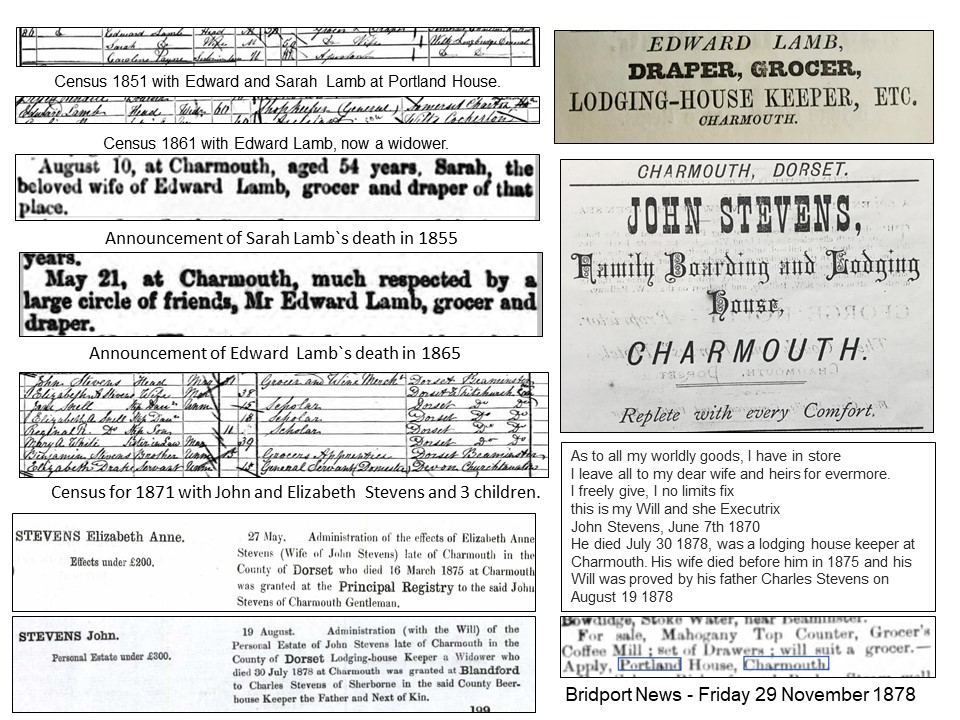 86 Edward Lamb Head
Sarah Do Wife
Caroline Payne
Census 1851 with Edward and Sarah Lamb at Portland House.
Edward Lamb Head 60 Shopkeeper (General) Somerset
Census 1861 with Edward Lamb, now a widower.
August 10, at Charmouth, aged 54 years, Sarah, the
beloved wife of Edward Lamb, grocer and draper of that
place.
Announcement of Sarah Lamb`s death in 1855
years.
May 21, at Charmouth, much respected by a
large circle of friends, Mr Edward Lamb, grocer and
draper.
Announcement of Edward Lamb`s death in 1865
John Stevens Head Mar Grocer and Wine Mercht Dorset Beaminster
Elizabeth A Stevens Wife Mar 38 Dorset Whitchurch
Jane Snell Step Daur Unm 15 Scholar Dorset Do Do
Elizabeth A Snell Step Daur 18 Scholar Dorset Do Do
Reginald R. Do Step Son 11 Scholar Dorset Do Do
Mary A White Sister in Law Mar 39 Dorset Do Do
Benjamin Stevens Brother Unm 15 Grocers Apprentice Dorset Beaminster
Elizabeth Drake Servant Unm 15 General Servant (Domestic) Devon
Census for 1871 with John and Elizabeth Stevens and 3 children.
STEVENS Elizabeth Anne.
Effects under £200.
27 May. Administration of the effects of Elizabeth Anne
Stevens (Wife of John Stevens) late of Charmouth in the
County of Dorset who died 16 March 1875 at Charmouth
was granted at the Principal Registry to the said John
Stevens of Charmouth Gentleman.
STEVENS John.
Personal Estate under £300.
19 August. Administration (with the Will) of the
Personal Estate of John Stevens late of Charmouth in the
County of Dorset Lodging-house Keeper a Widower who
died 30 July 1878 at Charmouth was granted at Blandford
to Charles Stevens of Sherborne in the said County Beer-
house Keeper the Father and Next of Kin.
199
EDWARD LAMB,
DRAPER, GROCER,
LODGING-HOUSE KEEPER, ETC.
CHARMOUTH.
CHARMOUTH, DORSET.
JOHN STEVENS,
Family Boarding and Lodging
House,
CHARMOUTH.
Replete with every Comfort.
As to all my worldly goods, I have in store
I leave all to my dear wife and heirs for evermore.
I freely give, I no limits fix
this is my Will and she Executrix
John Stevens, June 7th 1870
He died July 30 1878, was a lodging house keeper at
Charmouth. His wife died before him in 1875 and his
Will was proved by his father Charles Stevens on
August 19 1878
Bowdidge, Stoke Water, near Beaminster.
For sale, Mahogany Top Counter, Grocer's
Coffee Mill ; set of Drawers ; will suit a grocer.—
Apply, Portland House, Charmouth.
Bridport News - Friday 29 November 1878